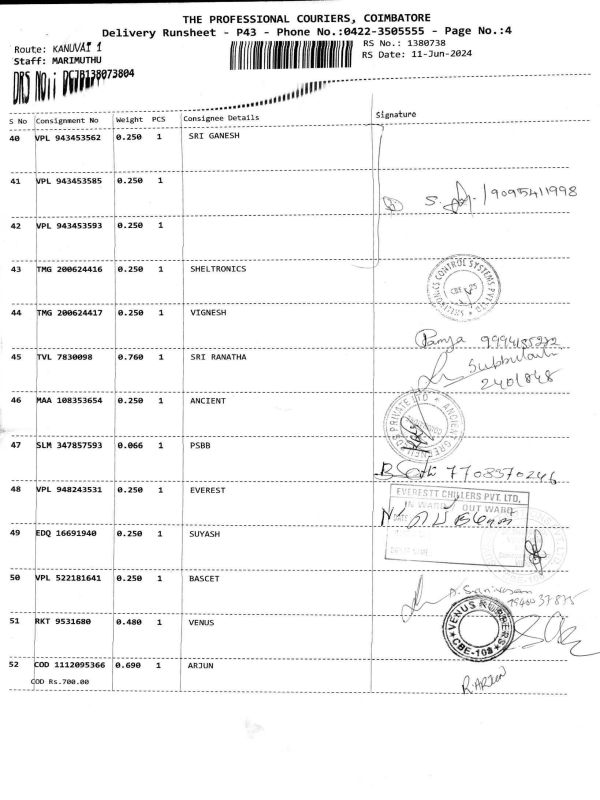 THE PROFESSIONAL COURIERS, COIMBATORE
Delivery Runsheet - P43 - Phone No.:0422-3505555 - Page No.:4
Route: KANUVAI 1
RS No.: 1380738
Staff: MARIMUTHU
RS Date: 11-Jun-2024
DRS No: DCJB138073804
S No Consignment No Weight PCS Consignee Details Signature
40 VPL 943453562 0.250 1 SRI GANESH
41 VPL 943453585 0.250 1
S. 9095411998
42 VPL 943453593 0.250 1
43 TMG 200624416 0.250 1 SHELTRONICS
SHELTRONICS CONTROL SYSTEMS PVT LTD
44 TMG 200624417 0.250 1 VIGNESH
45 TVL 7830098 0.760 1 SRI RANATHA
2401848
46 MAA 108353654 0.250 1 ANCIENT
47 SLM 347857593 0.066 1 PSBB
7708370246
48 VPL 948243531 0.250 1 EVEREST
EVERESTT CHILLERS PVT. LTD.
IN WARD / OUT WARD
49 EDQ 16691940 0.250 1 SUYASH
50 VPL 522181641 0.250 1 BASCET
51 RKT 9531680 0.480 1 VENUS
VENUS RUBBERS
CBE-108
52 COD 1112095366 0.690 1 ARJUN
COD Rs.700.00
R. ARJUN